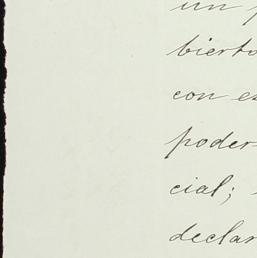 un p
bierto
con es
poder
cial;
declar